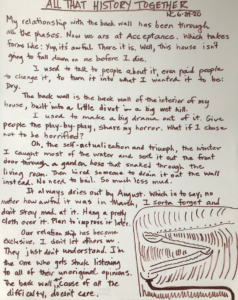 ALL THAT HISTORY TOGETHER
My relationship with the back wall has been through
all the phases. Now we are at Acceptance. Which takes
forms like: Yup, it's awful. There it is. Well, this house isn't
going to fall down on me before I die.
I used to talk to people about it, even paid people
to change it, to turn it into what I wanted it to be:
Dry.
The back wall is the back wall of the interior of my
house, built into a little divot in a big wet hill.
I used to make a big drama out of it. Give
people the play-by-play, share my horror. What if I chose
not to be horrified?
Oh, the self-actualization and triumph, the winter
I caught most of the water and sent it out the front
door through a garden hose that snaked through the
living room. Then hired someone to drain it out the wall
instead. No need to bail. So much less mud.
It always dries out by August. Which is to say, no
matter how awful it was in March, I sorta forget and
don't stay mad at it. Hang a pretty
cloth over it. Plan to improve it later.
Our relationship has become
exclusive. I don't let others in.
They just don't understand. I'm
the one who gets stuck listening
to all of their unoriginal opinions.
The back wall, cause of all the
difficulty, doesn't care.